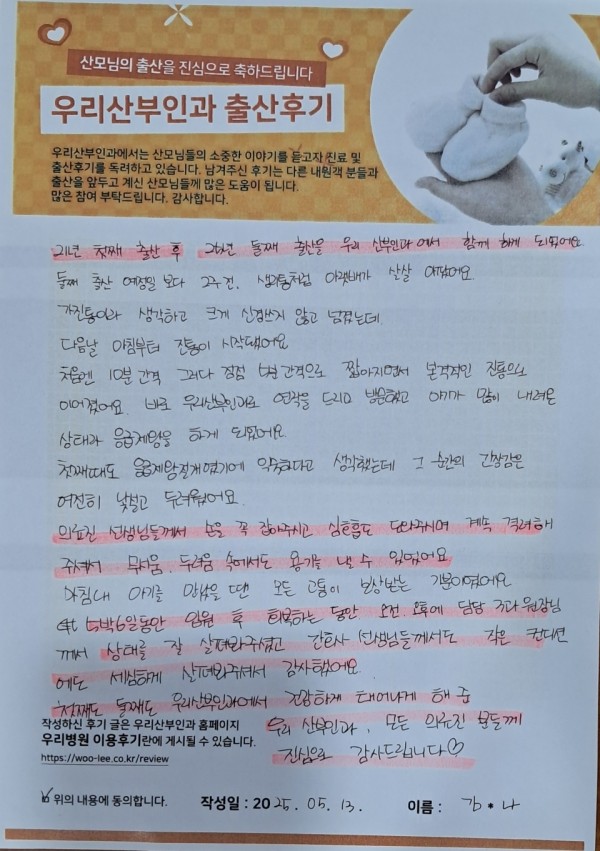 산모님의 출산을 진심으로 축하드립니다
우리산부인과 출산후기
우리산부인과에서는 산모님들의 소중한 이야기를 듣고자 진료 및
출산후기를 독려하고 있습니다. 남겨주신 후기는 다른 내원객 분들과
출산을 앞두고 계신 산모님들께 많은 도움이 됩니다.
많은 참여 부탁드립니다. 감사합니다.
21년 첫째 출산 후 25년 둘째 출산을 우리 산부인과에서 함께 하게 되었어요
둘째 출산 예정일 보다 2주전, 생리통처럼 아랫배가 살살 아팠어요
가진통이라 생각하고 크게 신경쓰지 않고 넘겼는데
다음날 아침부터 진통이 시작됐어요
처음엔 10분 간격 그러다 점점 5분 간격으로 짧아지면서 본격적인 진통으로
이어졌어요. 바로 우리산부인과로 연락을 드리고 방문했고 아기가 많이 내려온
상태라 응급제왕을 하게 되었어요
첫째때도 응급제왕절개였기에 익숙하다고 생각했는데 그 순간의 긴장감은
여전히 낯설고 두려웠어요.
의료진 선생님들께서 손을 꼭 잡아주시고 심호흡도 도와주시며 계속 격려해
주셔서 무서움, 두려움 속에서도 용기를 낼 수 있었어요
마침내 아기를 만났을 땐 모든 고통이 보상받는 기분이었어요
5박6일동안 입원 후 회복하는 동안 오전, 오후에 담당 3과 원장님
께서 상태를 잘 살펴봐주셨고 간호사 선생님들께서도 작은 컨디션
에도 세심하게 살펴봐주셔서 감사했어요.
첫째도 둘째도 우리산부인과에서 건강하게 태어나게 해 준
우리 산부인과, 모든 의료진 분들께
진심으로 감사드립니다♡
작성하신 후기 글은 우리산부인과 홈페이지
우리병원 이용후기란에 게시될 수 있습니다.
https://woo-lee.co.kr/review
위의 내용에 동의합니다. 작성일 : 2025. 05. 13. 이름 : 김*나